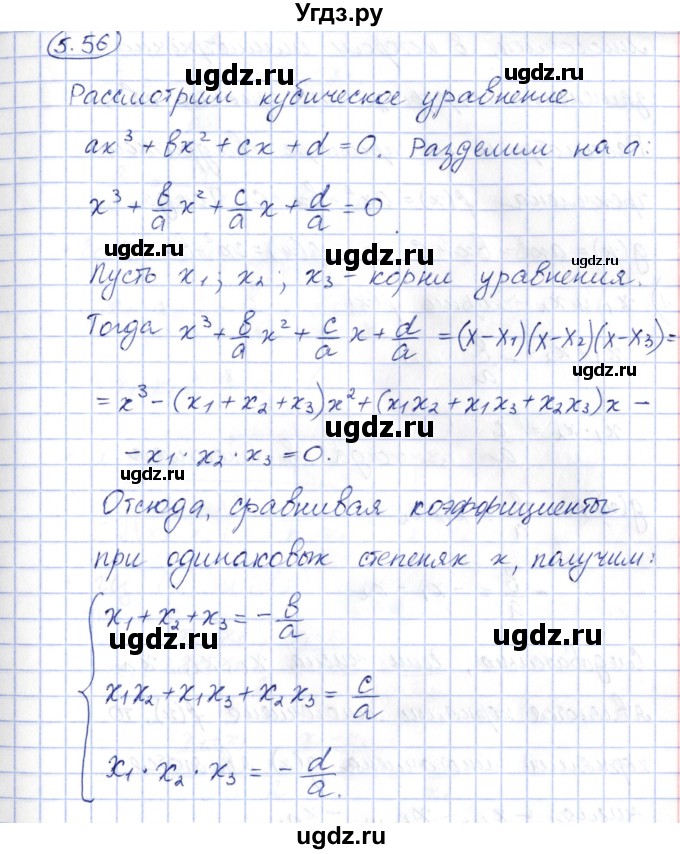 Угдз.ру
5.56
ugdz.ru ugdz.ru
Рассмотрим кубическое уравнение
ax³ + bx² + cx + d = 0. Разделим на a:
ugdz.ru
x³ + b/a x² + c/a x + d/a = 0
ugdz.ru ugdz.ru
Пусть x₁; x₂; x₃ – корни уравнения.
Тогда x³ + b/a x² + c/a x + d/a = (x–x₁)(x–x₂)(x–x₃) =
ugdz.ru
= x³ – (x₁ + x₂ + x₃)x² + (x₁x₂ + x₁x₃ + x₂x₃)x –
ugdz.ru
– x₁ · x₂ · x₃ = 0.
ugdz.ru
Отсюда, сравнивая коэффициенты
ugdz.ru
при одинаковых степенях x, получим:
x₁ + x₂ + x₃ = – b/a
ugdz.ru ugdz.ru
x₁x₂ + x₁x₃ + x₂x₃ = c/a
x₁ · x₂ · x₃ = – d/a.
ugdz.ru
ugdz.ru